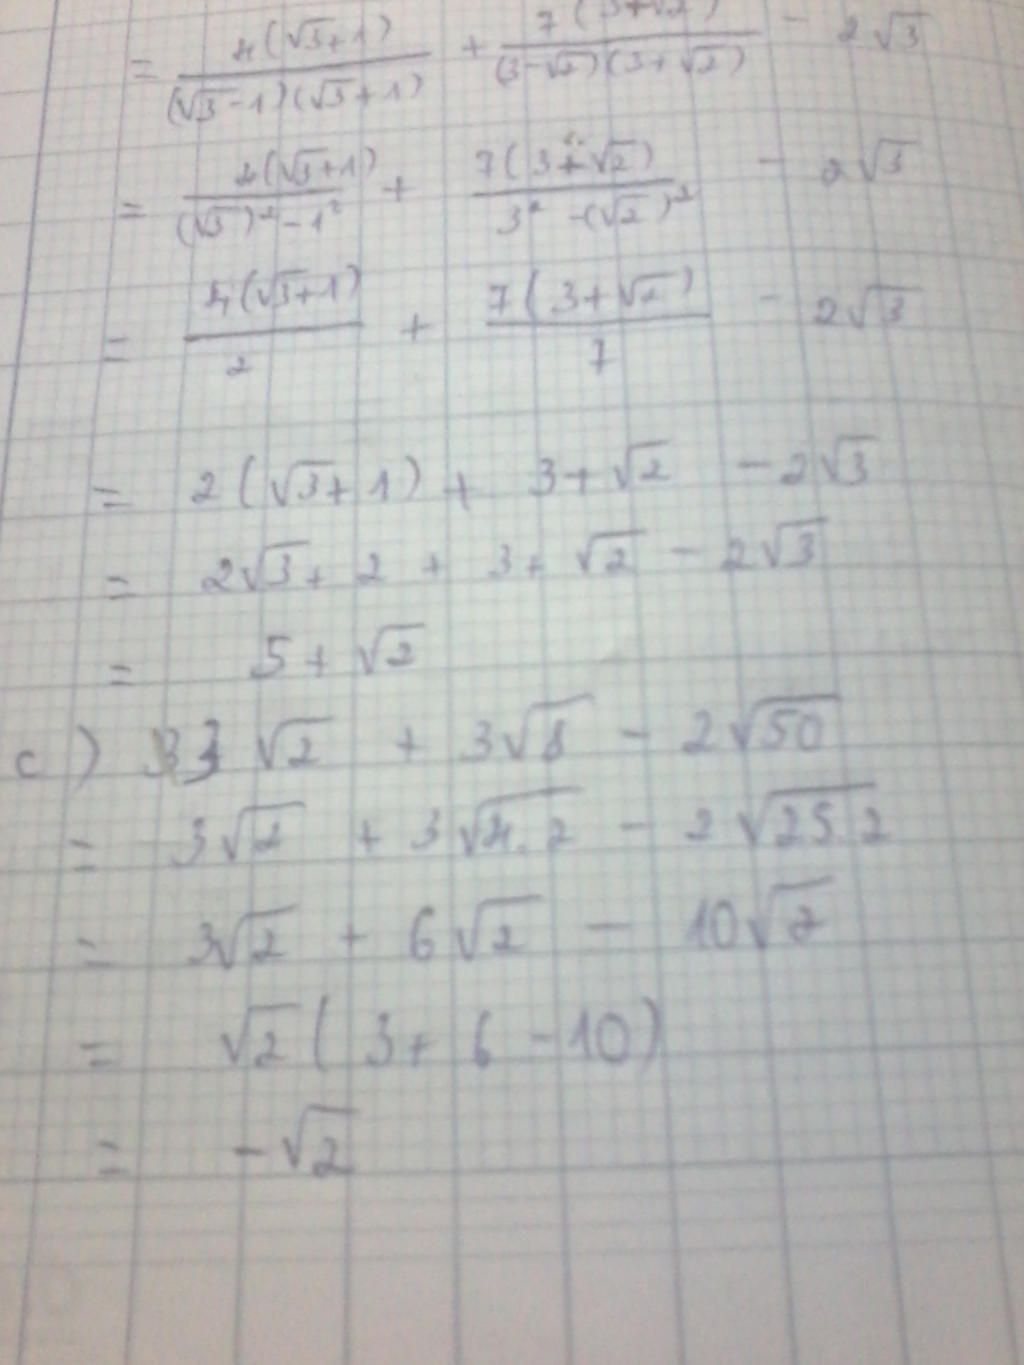 = 4(√3+1)/(√3-1)(√3+1) + 7(3+√2)/(3-√2)(3+√2) - 2√3
= 4(√3+1)/(√3)²-1² + 7(3+√2)/3²-(√2)² - 2√3
= 4(√3+1)/2 + 7(3+√2)/7 - 2√3
= 2(√3+1) + 3+√2 - 2√3
= 2√3 + 2 + 3 + √2 - 2√3
= 5 + √2
c) 3√2 + 3√8 - 2√50
= 3√2 + 3√4.2 - 2√25.2
= 3√2 + 6√2 - 10√2
= √2(3+6-10)
= -√2